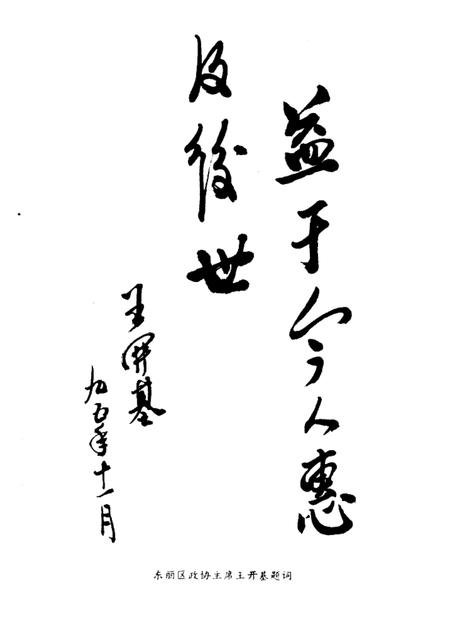 益于今人惠
及後世
王開基
九五年十一月
东丽区政协主席王开基题词